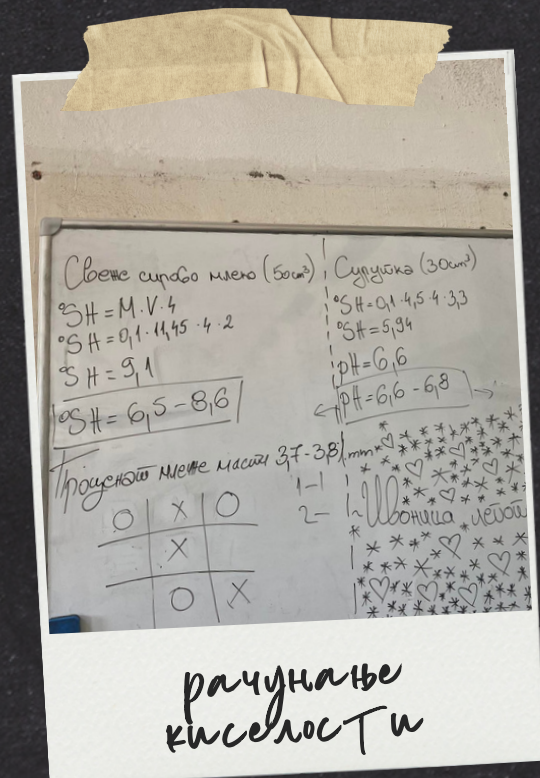 Свеже сирово млеко (50cm³)
°SH = M·V·4
°SH = 0,1·11,45·4·2
°SH = 9,1
°SH = 6,5 - 8,6
Проценат млечне масти 3,7-3,8%
Сурутка (30cm³)
°SH = 0,1·4,5·4·3,3
°SH = 5,94
pH = 6,6
pH = 6,6 - 6,8
1-1
2-
O X O
X
O X
рачунање
киселости